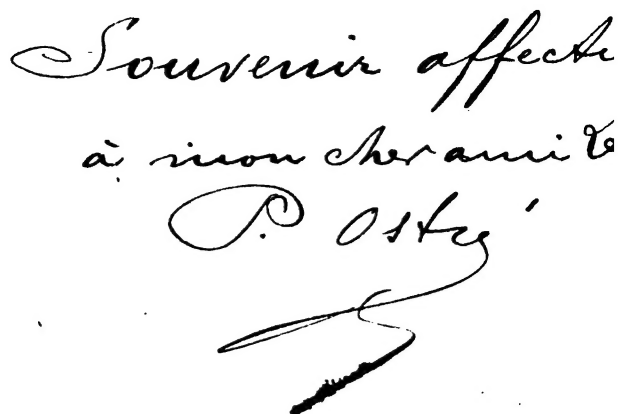 Souvenir affect
à mon cher ami
P. Ostré